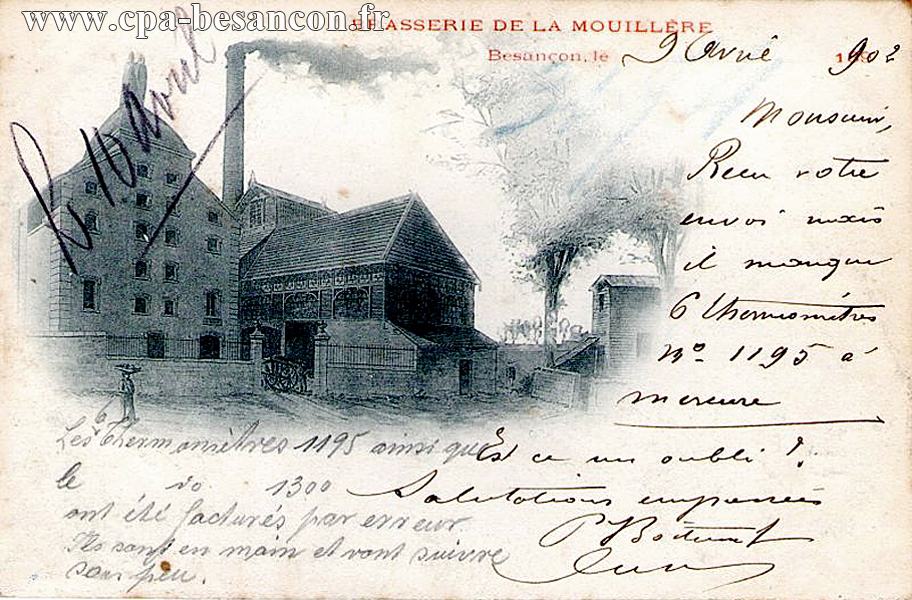 www.cpa-besancon.fr
BRASSERIE DE LA MOUILLÈRE
Besançon, le 9 Avril 1902
R 10 Avril
Monsieur,
Recu votre
envoi mais
il manque
6 thermomètres
No 1195 à
mercure
Est ce un oubli ?
Salutations empressées
Les 6 thermomètres 1195 ainsi que
le do 1300
ont été facturés par erreur.
Ils sont en main et vont suivre
sous peu.